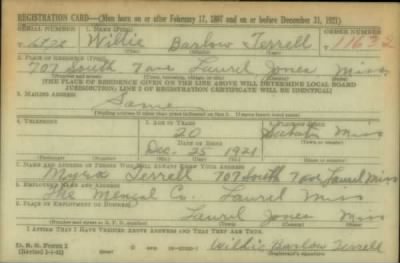 REGISTRATION CARD—(Men born on or after February 17, 1897 and on or before December 31, 1921)
SERIAL NUMBER 1. NAME (Print) ORDER NUMBER
Willie Barlow Terrell 11632
2. PLACE OF RESIDENCE (Print)
707 South 7 ave Laurel Jones Miss
(THE PLACE OF RESIDENCE GIVEN ON THE LINE ABOVE WILL DETERMINE LOCAL BOARD
JURISDICTION; LINE 2 OF REGISTRATION CERTIFICATE WILL BE IDENTICAL)
3. MAILING ADDRESS
Same
4. TELEPHONE 5. AGE IN YEARS 6. PLACE OF BIRTH
20
DATE OF BIRTH Miss
Dec. 25 1921
7. NAME AND ADDRESS OF PERSON WHO WILL ALWAYS KNOW YOUR ADDRESS
Myra Terrell 707 South 7 ave Laurel Miss
8. EMPLOYER'S NAME AND ADDRESS
The Mengal Co. Laurel Miss
9. PLACE OF EMPLOYMENT OR BUSINESS
Laurel Jones Miss
I AFFIRM THAT I HAVE VERIFIED ABOVE ANSWERS AND THAT THEY ARE TRUE.
D. S. S. Form 1
Willie Barlow Terrell